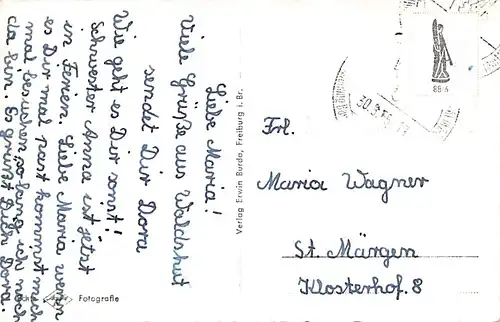 Liebe Maria!
Viele Grüße aus Waldshut
sendet Dir Dora
Wie geht es Dir sonst!
Schwester Anna ist jetzt
in Ferien. Liebe Maria wenn
es Dir mal past kommst mich
mal besuchen so lang ich noch
da bin. Es grüßt Dich Dora.
Echte Fotografie
Verlag Erwin Burda, Freiburg i. Br.
8816
Frl.
Maria Wagner
St. Märgen
Klosterhof. 8